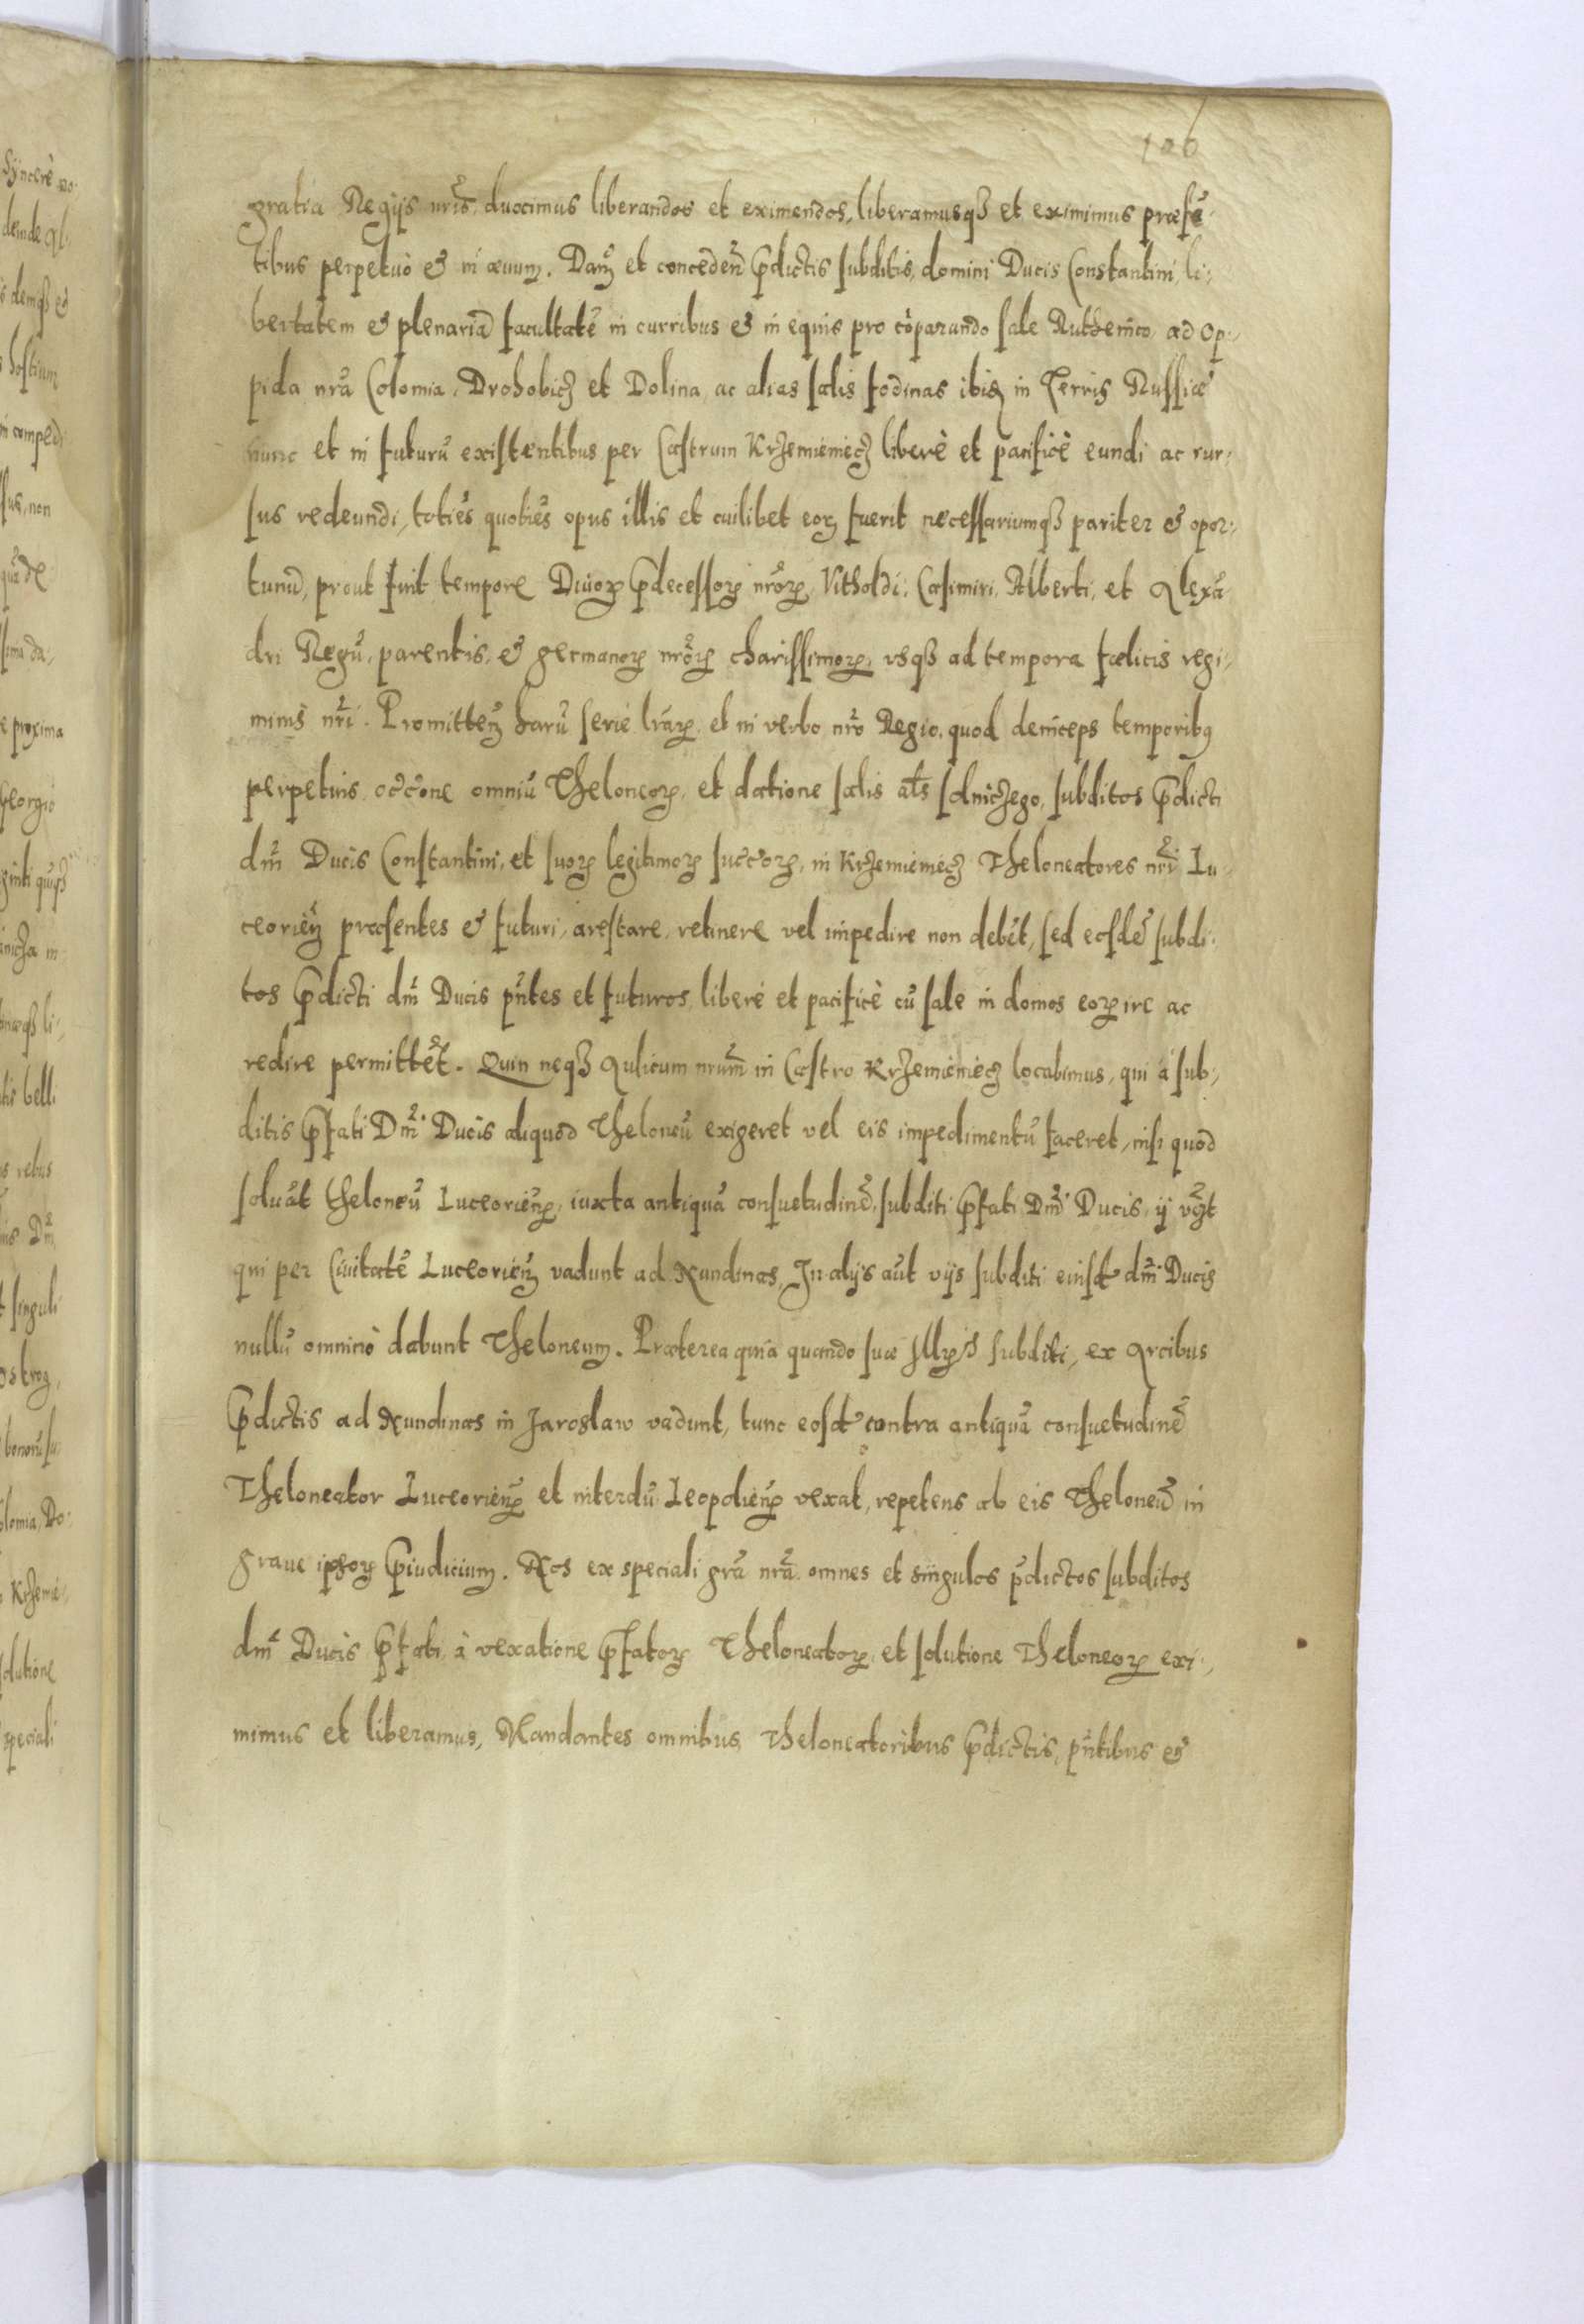 106
gratia Regijs nr̃is, duximus liberandos et eximendos, liberamusq3 et eximimus præsẽ-
tibus perpetuò & in æuum. Dañ et conceden̄ p̃dictis subditis, domini Ducis Constantini, li-
bertatem & plenariã facultatẽ in curribus & in equis pro cõparando sale Ruthenico, ad Op-
pida nrã Colomia, Drohobicz et Dolina, ac alias salis fodinas ibid in Terris Russiæ
nunc et in futurũ existentibus per Castrum Krzemieniecz liberè et pacificè eundi ac rur-
sus redeundi, totiẽs quotiẽs opus illis et cuilibet eoꝝ fuerit necessariumq3 pariter & opor-
tunũ, prout fuit tempore Diuoꝝ p̃decessoꝝ nr̃oꝝ, Vitholdi, Casimiri, Alberti, et Alexã
dri Regũ, parentis, & germanoꝝ nr̃oꝝ charissimoꝝ, vsq3 ad tempora fœlicis regi-
minis nr̃i. Promitteñ harũ serie lrãꝝ, et in verbo nr̃o Regio, quod deinceps temporibꝰ
perpetuis occ̃one omniũ Theloneoꝝ, et datione salis al̃s solniczego, subditos p̃dicti
dñi Ducis Constantini, et suoꝝ legitimoꝝ succ̃oꝝ, in Krzemieniecz Theloneatores nr̃i Lu-
ceorieñ præsentes & futuri, arestare, retinere vel impedire non debẽt, sed eosdẽ subdi-
tos p̃dicti dñi Ducis pñtes et futuros, liberè et pacificè cũ sale in domos eoꝝ ire ac
redire permittẽt. Quin neq3 Aulicum nrum̃ in Castro Krzemieniecz locabimus, qui à sub-
ditis p̃fati Dñi Ducis aliquod Theloneũ exigeret vel eis impedimentũ faceret, nisi quod
soluãt theloneũ Luceorieñ, iuxta antiquã consuetudinẽ, subditi p̃fati Dñi Ducis, ij vt̃
qui per Ciuitatẽ Luceorieñ vadunt ad Nundinas, In alijs aũt vijs subditi eiusd dñi Ducis
nullũ omninò dabunt Theloneum. Præterea quia quando suæ Illꝝ subditi, ex Arcibus
p̃dictis ad Nundinas in Jaroslaw vadunt, tunc eosd contra antiquã consuetudinẽ
Theloneator Luceorieñ et interdũ Leopolieñ vexat, repetens ab eis Theloneũ in
graue ipsoꝝ p̃iudicium. Nos ex speciali grã nrã omnes et singulos p̃dictos subditos
dñi Ducis p̃fati, à vexatione p̃fatoꝝ Theloneatoꝝ, et solutione Theloneoꝝ exi-
mimus et liberamus, Mandantes omnibus Theloneatoribus p̃dictis, pñtibus &